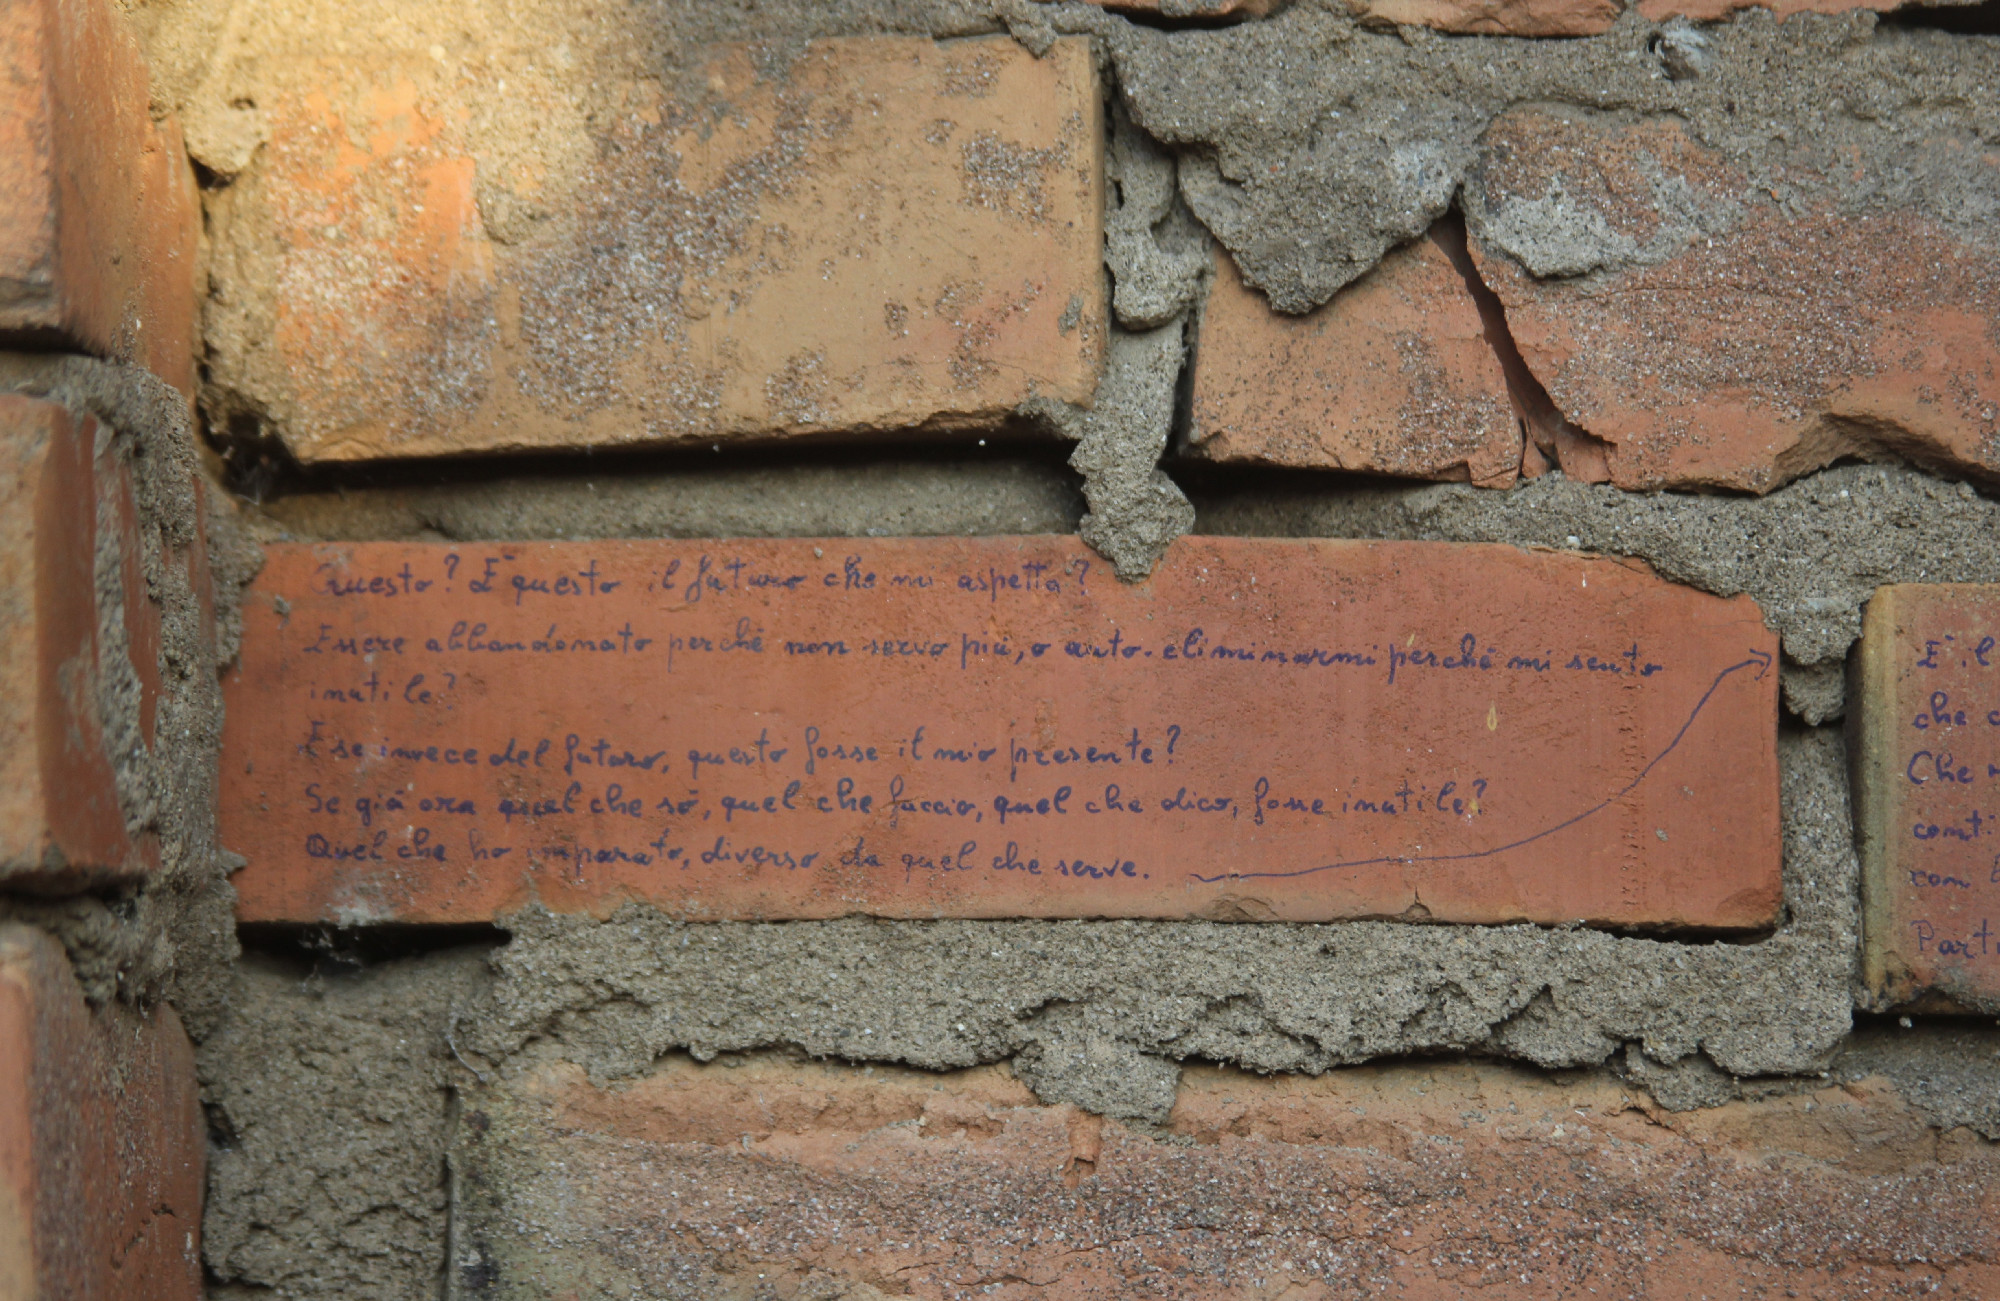 Questo? È questo il futuro che mi aspetta?
Essere abbandonato perché non servo più, o auto-eliminarmi perché mi sento
inutile?
E se invece del futuro, questo fosse il mio presente?
Se già ora quel che sò, quel che faccio, quel che dico, fosse inutile?
Quel che ho imparato, diverso da quel che serve.
È il
che
Che
conti
con
Parti